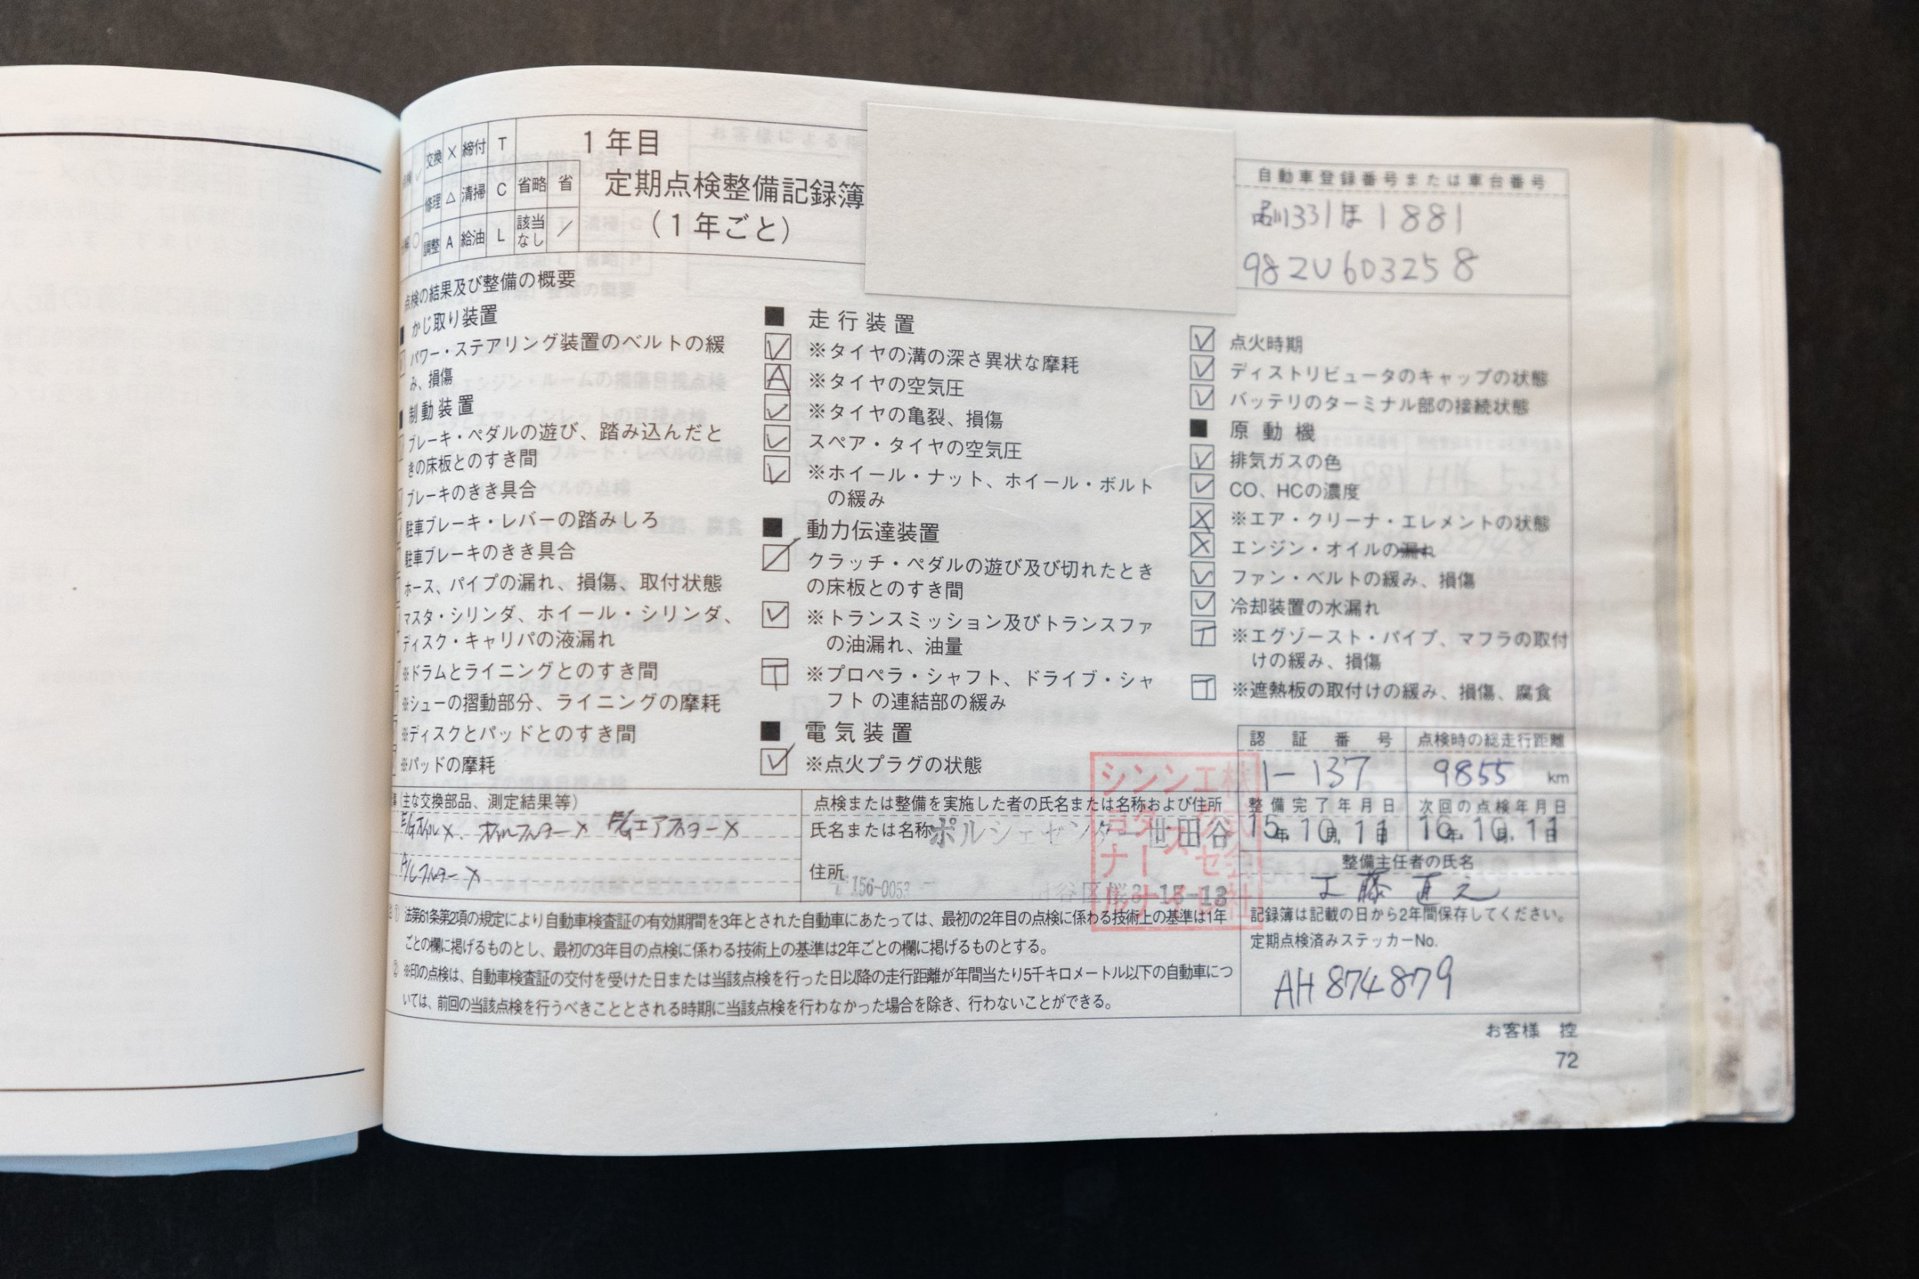 交換 × 締付 T
修理 △ 清掃 C 省略 省
調整 A 給油 L 該当なし ／
1年目
定期点検整備記録簿
(1年ごと)
自動車登録番号または車台番号
1881
982U603258
点検の結果及び整備の概要
■ かじ取り装置
パワー・ステアリング装置のベルトの緩
み、損傷
■ 制動装置
ブレーキ・ペダルの遊び、踏み込んだと
きの床板とのすき間
ブレーキのきき具合
駐車ブレーキ・レバーの踏みしろ
駐車ブレーキのきき具合
ホース、パイプの漏れ、損傷、取付状態
マスタ・シリンダ、ホイール・シリンダ、
ディスク・キャリパの液漏れ
※ドラムとライニングとのすき間
※シューの摺動部分、ライニングの摩耗
※ディスクとパッドとのすき間
※パッドの摩耗
■ 走行装置
※タイヤの溝の深さ異状な摩耗
A ※タイヤの空気圧
※タイヤの亀裂、損傷
スペア・タイヤの空気圧
※ホイール・ナット、ホイール・ボルト
の緩み
■ 動力伝達装置
クラッチ・ペダルの遊び及び切れたとき
の床板とのすき間
※トランスミッション及びトランスファ
の油漏れ、油量
T ※プロペラ・シャフト、ドライブ・シャ
フトの連結部の緩み
■ 電気装置
※点火プラグの状態
点火時期
ディストリビュータのキャップの状態
バッテリのターミナル部の接続状態
■ 原動機
排気ガスの色
CO、HCの濃度
× ※エア・クリーナ・エレメントの状態
× エンジン・オイルの漏れ
ファン・ベルトの緩み、損傷
冷却装置の水漏れ
T ※エグゾースト・パイプ、マフラの取付
けの緩み、損傷
T ※遮熱板の取付けの緩み、損傷、腐食
(主な交換部品、測定結果等)
点検または整備を実施した者の氏名または名称および住所
氏名または名称 ポルシェセンター世田谷
住所
〒156-0053
認証番号 点検時の総走行距離
1-137 9855 km
整備完了年月日 次回の点検年月日
15年10月11日 16年10月11日
整備主任者の氏名
工藤
記録簿は記載の日から2年間保存してください。
定期点検済みステッカーNo.
AH 874879
① 法第61条第2項の規定により自動車検査証の有効期間を3年とされた自動車にあたっては、最初の2年目の点検に係わる技術上の基準は1年
ごとの欄に掲げるものとし、最初の3年目の点検に係わる技術上の基準は2年ごとの欄に掲げるものとする。
② ※印の点検は、自動車検査証の交付を受けた日または当該点検を行った日以降の走行距離が年間当たり5千キロメートル以下の自動車につ
いては、前回の当該点検を行うべきこととされる時期に当該点検を行わなかった場合を除き、行わないことができる。
お客様 控
72